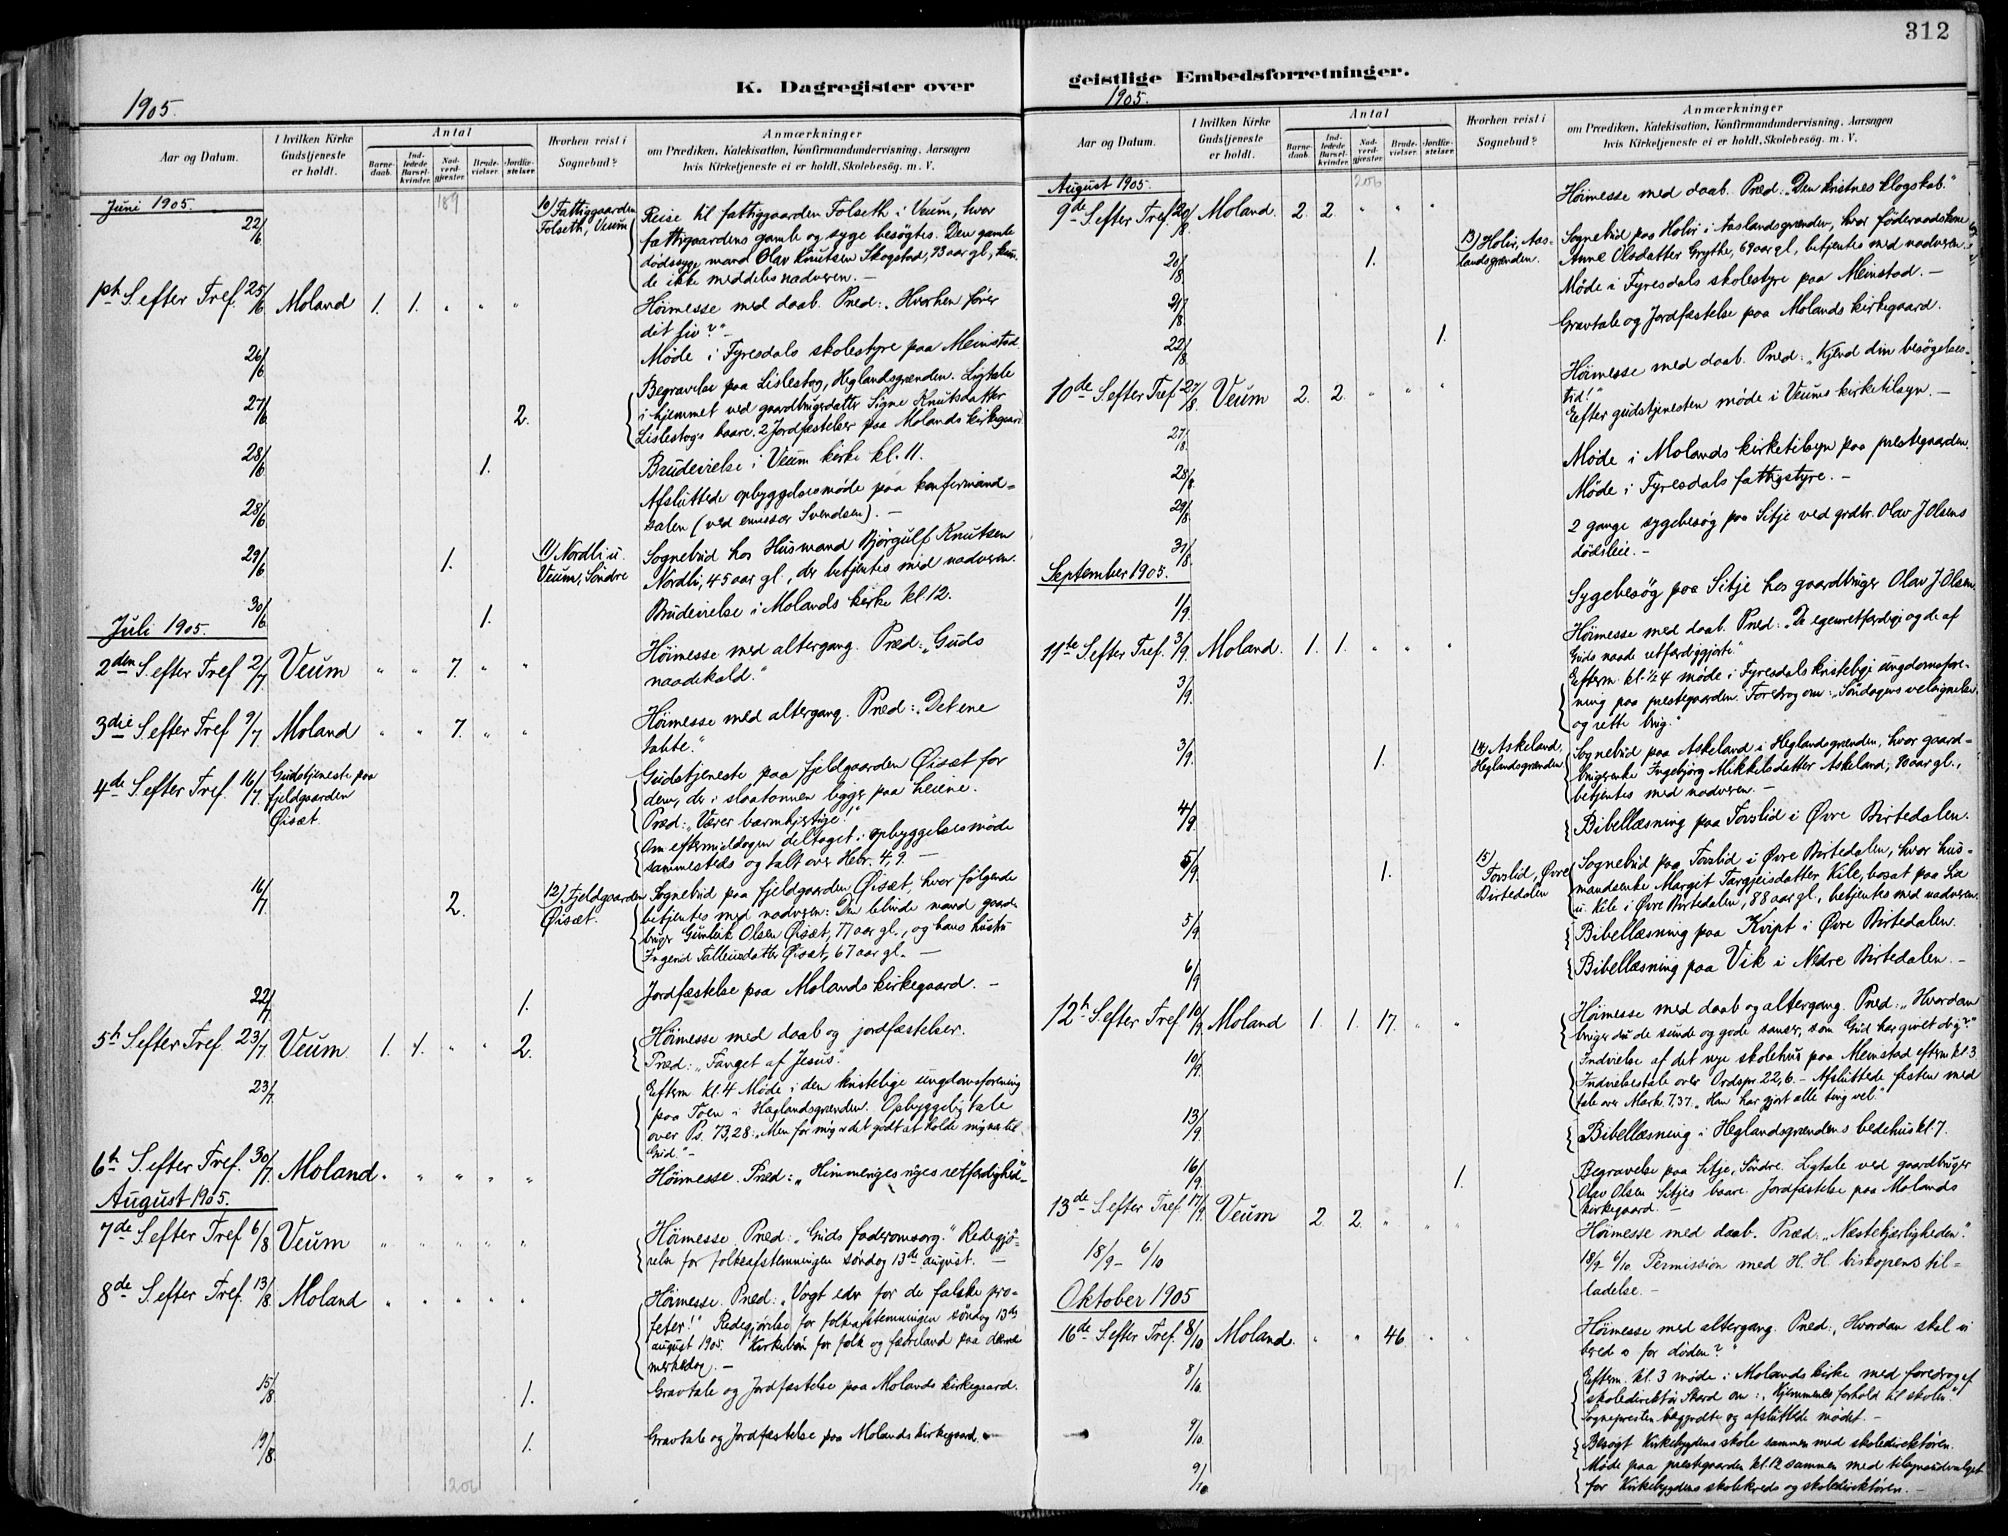 312
K. Dagregister over
1905.
Aar og Datum.
I hvilken Kirke Gudstjeneste er holdt.
Antal
Barnedaab.
Indledede Barselkvinder.
Nadverdgjester
Brudevielser.
Jordfæstelser
Hvorhen reist i Sognebud?
Anmærkninger
om Prædiken, Katekisation, Konfirmandundervisning, Aarsagen
hvis Kirketjeneste ei er holdt, Skolebesøg. m. V.
189
Juni 1905.
22/6 10) Fattiggaarden Folseth, Veum Reise til fattiggaarden Folseth i Veum, hvor
fattiggaardens gamle og syge besøgtes. Den gamle
dødssyge mand Olav Knutsen Skogstad, 93 aar gl., kun-
de ikke meddeles nadveren. —
S. efter Tref. 25/6 Moland 1. 1. " " " Høimesse med daab. Pred: "Hvorhen fører
dit liv?"
26/6 Møde i Fyresdals skolestyre paa Meinstad
27/6 2. Begravelse paa Lislestog, Heglandsgrænden. Ligtale
i hjemmet ved gaardbrugerdatter Signe Knutsdatter
Lislestogs baare. 2 Jordfæstelser paa Molands kirkegaard
28/6 1. Brudevielse i Veum kirke kl. 11.
28/6 Afsluttede opbyggelsesmøde paa konfirmand=
salen (ved emissær Svendsen). —
29/6 1. 11) Nordli u. Veum, Söndre Sognebud hos Husmand Bjørgulf Knutsen
Nordli, 45 aar gl., der betjentes med nadveren.
30/6 1. Brudevielse i Molands kirke kl 12.
Juli 1905.
2den S. efter Tref 2/7 Veum " " 7. " " Høimesse med altergang. Præd: "Guds
naadekald."
3die S. efter Tref 9/7 Moland " " 7. " " Høimesse med altergang. Pred: "Det ene
tabte."
4de S. efter Tref. 16/7 Gudstjeneste paa fjeldgaarden Øisæt. Gudstjeneste paa fjeldgaarden Øisæt for
dem, der i slaatonnen ligge paa heiene.
Præd: "Værer barmhjertige!"
Om eftermiddagen deltaget i opbyggelsesmøde
sammesteds og talt over Hebr. 4, 9. —
16/7 2. 12) Fjeldgaarden Øisæt. Sognebud paa fjeldgaarden Øisæt, hvor følgende
betjentes med nadveren: Den blinde mand gaard-
bruger Gunleik Olsen Øisæt, 77 aar gl., og hans hustru
Ingerid Talleivsdatter Øisæt, 67 aar gl. —
22/7 1. Jordfæstelse paa Molands kirkegaard. —
5te S. efter Tref. 23/7 Veum 1. 1. " " 2. Høimesse med daab og jordfæstelser.
Præd: "Fanget af Jesus."
23/7 Efterm kl. 4 Møde i den kristelige ungdomsforening
paa Toen i Heglandsgrænden. Opbyggelig tale
over Ps. 73,28: "Men for mig er det godt at holde mig nær til
Gud." —
6te S. efter Tref. 30/7 Moland " " " " " Høimesse. Præd: "Himmeriges riges retfærdighed"
August 1905.
7de S. efter Tref 6/8 Veum " " " " " Høimesse. Pred: "Guds faderomsorg." Redegjö-
relse for folkeafstemningen søndag 13de august. —
8de S. efter Tref. 13/8 Moland " " " " " Høimesse. Præd: "Vogt eder for de falske pro-
feter!" Redegjørelse for folkeafstemningen søndag 13de
august 1905. Kirkebøn for folk og fædreland paa denne
merkedag. —
15/8 1. Gravtale og Jordfæstelse paa Molands kirkegaard.
19/8 1. Gravtale og Jordfæstelse paa Molands kirkegaard.
206
geistlige Embedsforretninger.
1905.
Aar og Datum.
I hvilken Kirke Gudstjeneste er holdt.
Antal
Barnedaab.
Indledede Barselkvinder.
Nadverdgjester
Brudevielser.
Jordfæstelser.
Hvorhen reist i Sognebud?
Anmærkninger
om Prædiken, Katekisation, Konfirmandundervisning, Aarsagen
hvis Kirketjeneste ei er holdt, Skolebesøg. m. V.
206
August 1905.
9de S. efter Tref. 20/8 Moland. 2. 2. " " " Høimesse med daab. Præd: "Den kristnes klogskab."
20/8 1. 13) Holir, Aaslandsgrænden. Sognebud paa Holir i Aaslandsgrænden, hvor føderaadskone
Anne Olsdatter Grythe, 69 aar gl., betjentes med nadveren.
21/8 Møde i Fyresdals skolestyre paa Meinstad. —
22/8 1. Gravtale og Jordfæstelse paa Molands kirkegaard.
10de S. efter Tref 27/8 Veum 2. 2. " " Høimesse med daab. Pred: "Kjend din besøgelses-
tid!"
27/8 Efter gudstjenesten møde i Veums kirketilsyn. —
28/8 Møde i Molands kirketilsyn paa prestegaarden.
29/8 Møde i Fyresdals fattigstyre. —
31/8 2 gange sygebesøg paa Sitje ved grdbr. Olav J. Olsens
dødsleie. —
September 1905.
1/9 Sygebesøg paa Sitje hos gaardbruger Olav J. Olsen.
11te S. efter Tref. 3/9 Moland. 1. 1. " " " Høimesse med daab. Præd: "De egenretfærdige og de af
Guds naade retfærdiggjorte."
3/9 Efterm. kl. ½ 4 møde i Fyresdals kristelige ungdomsfore-
ning paa prestegaarden. Foredrag om: "Søndagens velsignelse
og rette brug."
3/9 1. 14) Askeland, Heglandsgrænden Sognebud paa Askeland i Heglandsgrænden, hvor gaard-
brugerenke Ingebjørg Mikkelsdatter Askeland, 80 aar gl.,
betjentes med nadveren. —
4/9 Bibellæsning paa Forslid i Øvre Birtedalen.
5/9 1. 15) Forslid, Øvre Birtedalen Sognebud paa Forslid i Øvre Birtedalen, hvor hus-
mandsenke Margit Targjeisdatter Kile, bosat paa
u. Kile i Øvre Birtedalen, 88 aar gl., betjentes med nadveren.
5/9 Bibellæsning paa Kvipt i Øvre Birtedalen.
6/9 Bibellæsning paa Vik i Nedre Birtedalen. —
12te S. efter Tref 10/9 Moland 1. 1. 17. " " Høimesse med daab og altergang. Pred: "Hvordan
bruger du de sunde og gode sanser, som Gud har givet dig?"
10/9 Indvielse af det nye skolehus paa Meinstad efterm kl. 3.
Indvielsestale over Ordspr. 22,6. — Afsluttede festen med
tale over Mark. 7.37. "Han har gjort alle ting vel."
13/9 Bibellæsning i Heglandsgrændens bedehus kl. 7.
16/9 1. Begravelse paa Sitje, Söndre. Ligtale ved gaardbruger
Olav Olsen Sitjes baare. Jordfæstelse paa Molands
kirkegaard. —
13de S. efter Tref 17/9 Veum 2 2. " " " Høimesse med daab. Præd: "Næstekjærligheden."
18/9 – 6/10 18/9 – 6/10 Permission med H. H. biskopens til-
ladelse. —
Oktober 1905
16de S. efter Tref. 8/10 Moland. " " 46. " " Høimesse med altergang. Pred: "Hvordan skal vi
berede os for døden?"
8/10 Efterm. kl. 3 møde i Molands kirke med foredrag af
skoledirektør Skard om: "Hjemmenes forhold til skolen."
Sognepresten begyndte og afsluttede mødet. —
9/10 Besøgt Kirkebygdens skole sammen med skoledirektøren.
9/10 Møde paa prestegaarden kl. 12 sammen med tilsynsudvalget
for Kirkebygdens skolekreds og skoledirektøren. —